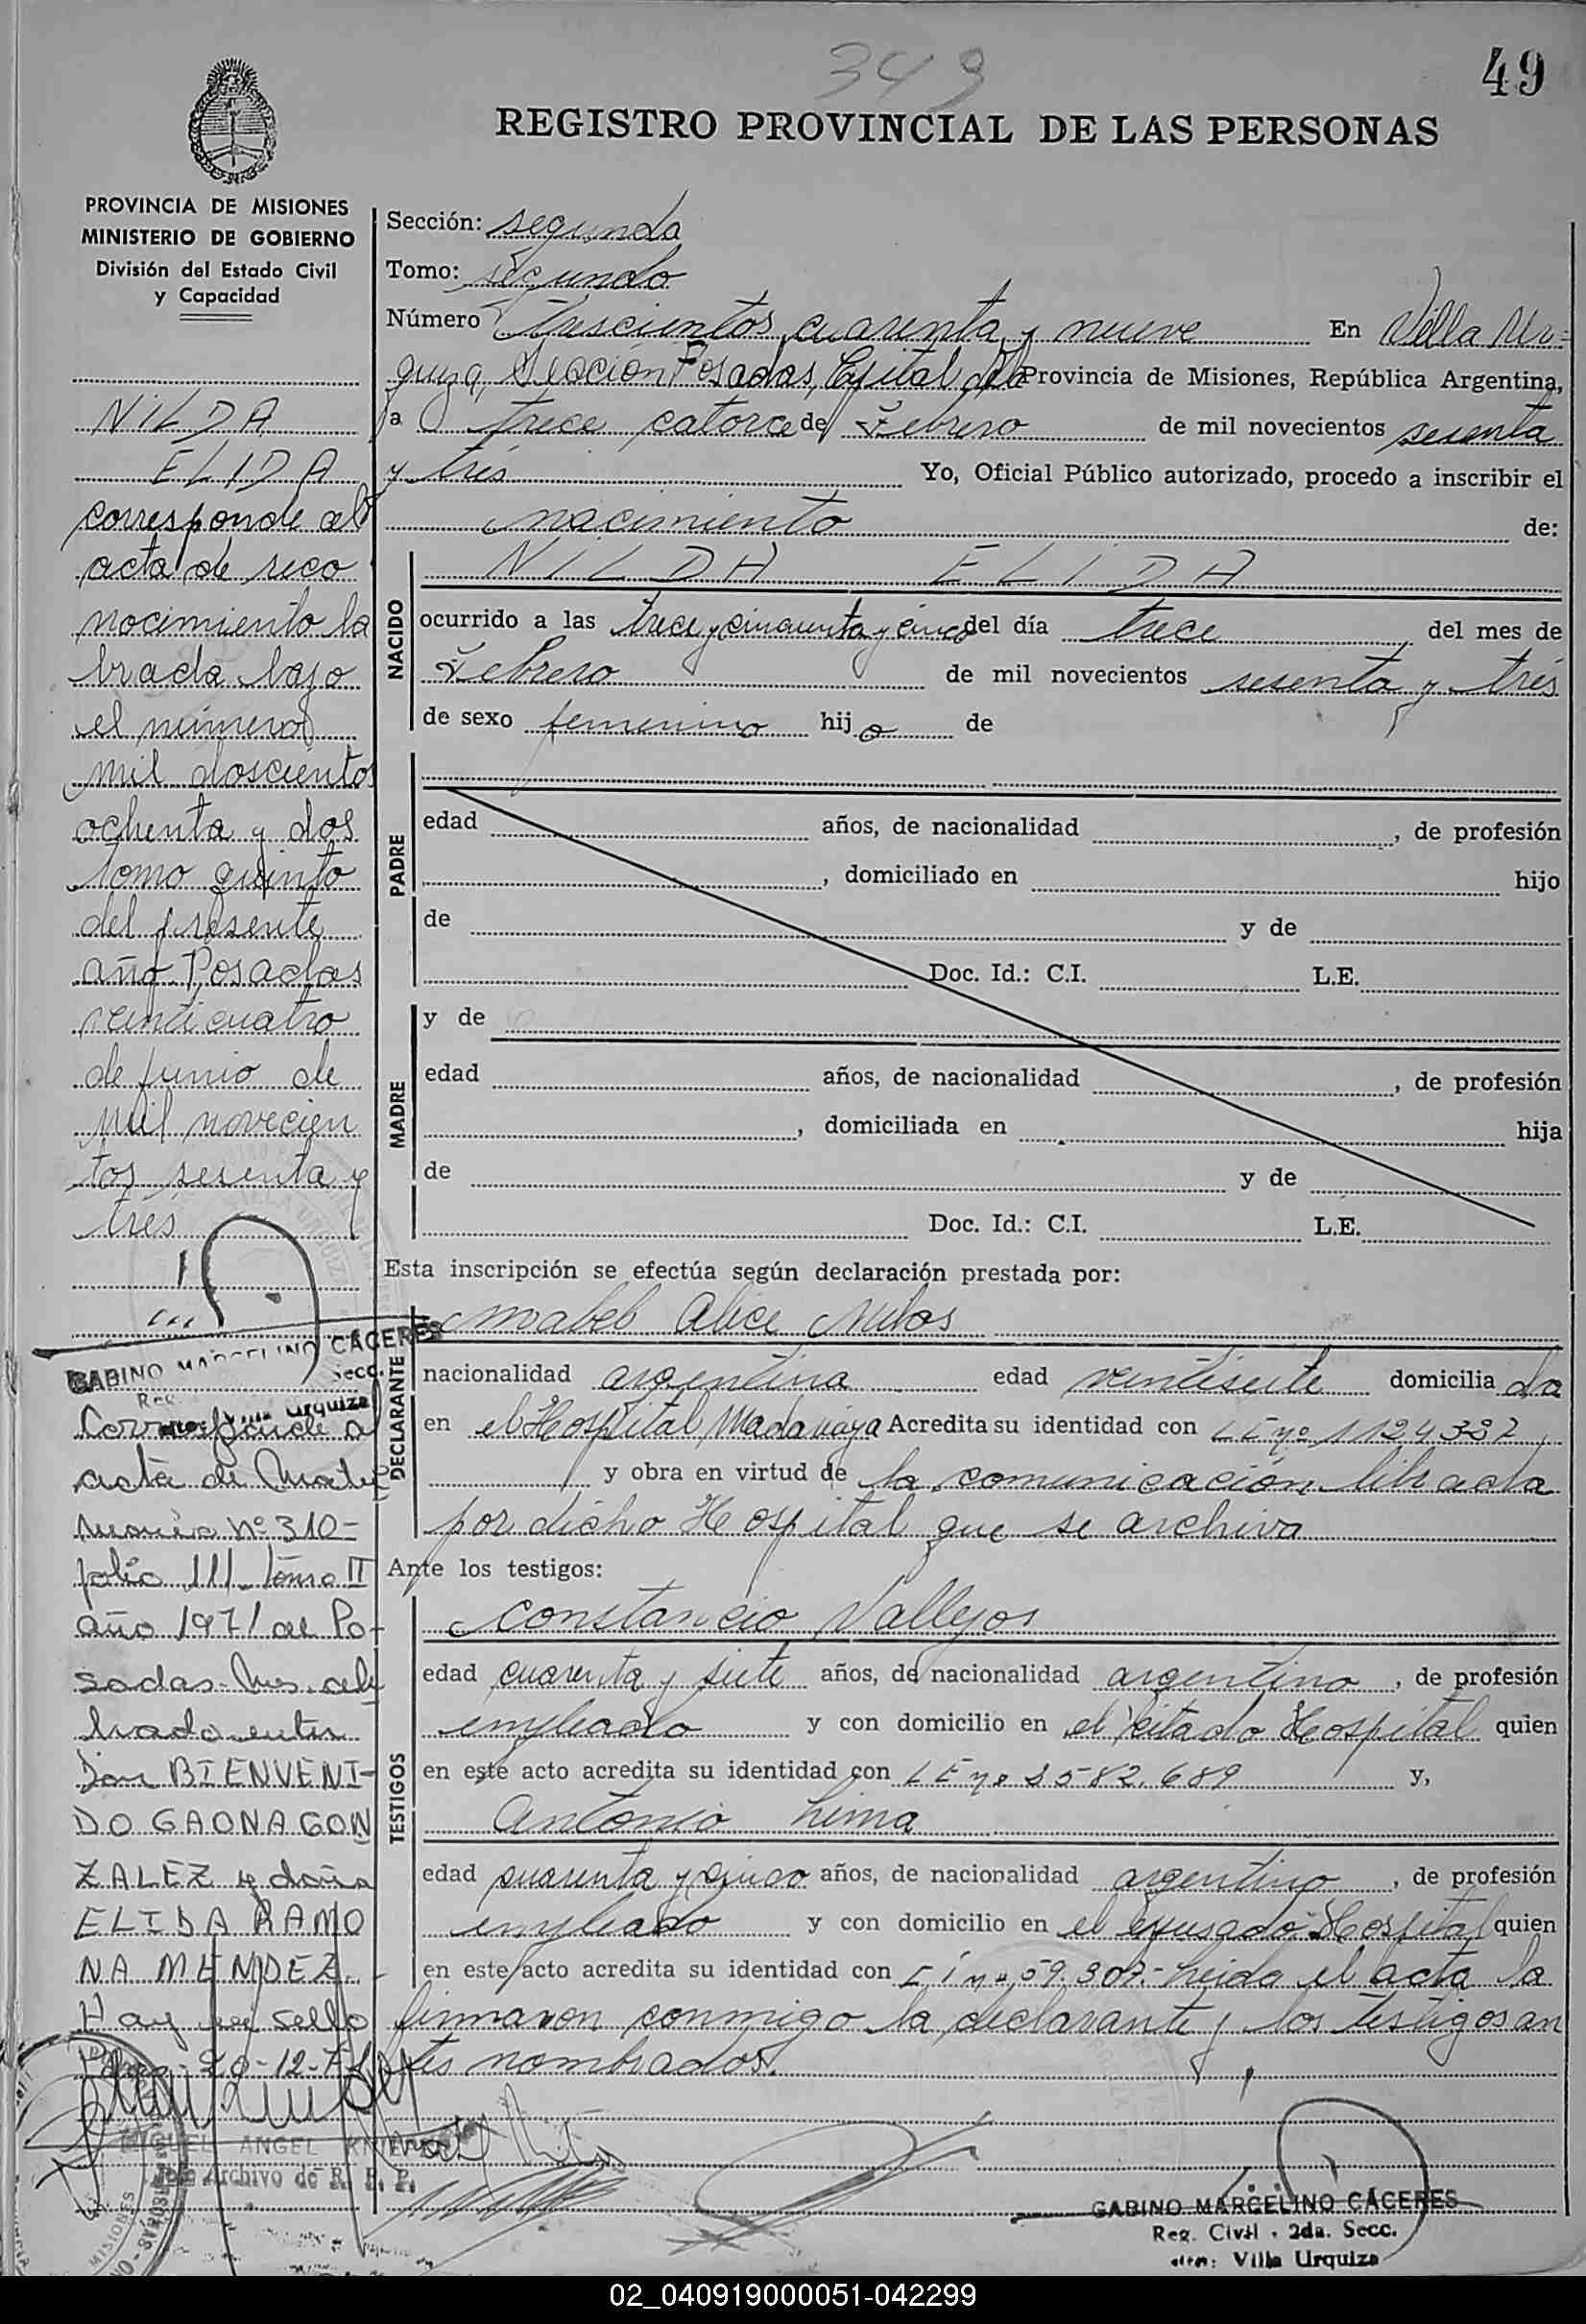 349
49
REGISTRO PROVINCIAL DE LAS PERSONAS
PROVINCIA DE MISIONES
MINISTERIO DE GOBIERNO
División del Estado Civil
y Capacidad
NILDA
ELIDA
corresponde al
acta de reco
nocimiento la
brada bajo
el número
mil doscientos
ochenta y dos
tomo quinto
del presente
año Posadas
veinticuatro
de junio de
mil novecien
tos sesenta y
trés
GABINO MARCELINO CÁCERES
Secc.
Urquiza
Corresponde a
acta de Matri
monio Nº 310-
folio 111 - Tomo II
año 1971 de Po-
sadas
entre
Don BIENVENI-
DO GAONA GON
ZALEZ y doña
ELIDA RAMO
NA MENDEZ.-
Hay un sello
20-12-71
MIGUEL ANGEL
Jefe Archivo de R. P. P.
Sección: segunda
Tomo: segundo
Número Trescientos cuarenta y nueve En Villa Ur=
quiza, Sección Posadas, Capital de la Provincia de Misiones, República Argentina,
a trece catorce de Febrero de mil novecientos sesenta
y trés Yo, Oficial Público autorizado, procedo a inscribir el
nacimiento de:
NACIDO
NILDA ELIDA
ocurrido a las trece y cincuenta y cinco del día trece del mes de
Febrero de mil novecientos sesenta y trés
de sexo femenino hija de
PADRE
edad años, de nacionalidad , de profesión
, domiciliado en hijo
de y de
Doc. Id.: C.I. L.E.
MADRE
y de
edad años, de nacionalidad , de profesión
, domiciliada en hija
de y de
Doc. Id.: C.I. L.E.
Esta inscripción se efectúa según declaración prestada por:
DECLARANTE
Mabel Alice
nacionalidad argentina edad veintisiete domicilia da
en el Hospital Madariaga Acredita su identidad con LE nº 1124327,
y obra en virtud de la comunicación librada
por dicho Hospital que se archiva
Ante los testigos:
TESTIGOS
Constancio Vallejos
edad cuarenta y siete años, de nacionalidad argentino, de profesión
empleado y con domicilio en el citado Hospital quien
en este acto acredita su identidad con LE nº 1582.689 y,
Antonio Lima
edad cuarenta y cinco años, de nacionalidad argentino, de profesión
empleado y con domicilio en el expresado Hospital quien
en este acto acredita su identidad con 59.307.- Leída el acta la
firmaron conmigo la declarante y los testigos an
tes nombrados.
GABINO MARCELINO CÁCERES
Reg. Civil - 2da. Secc.
Villa Urquiza
02_040919000051-042299